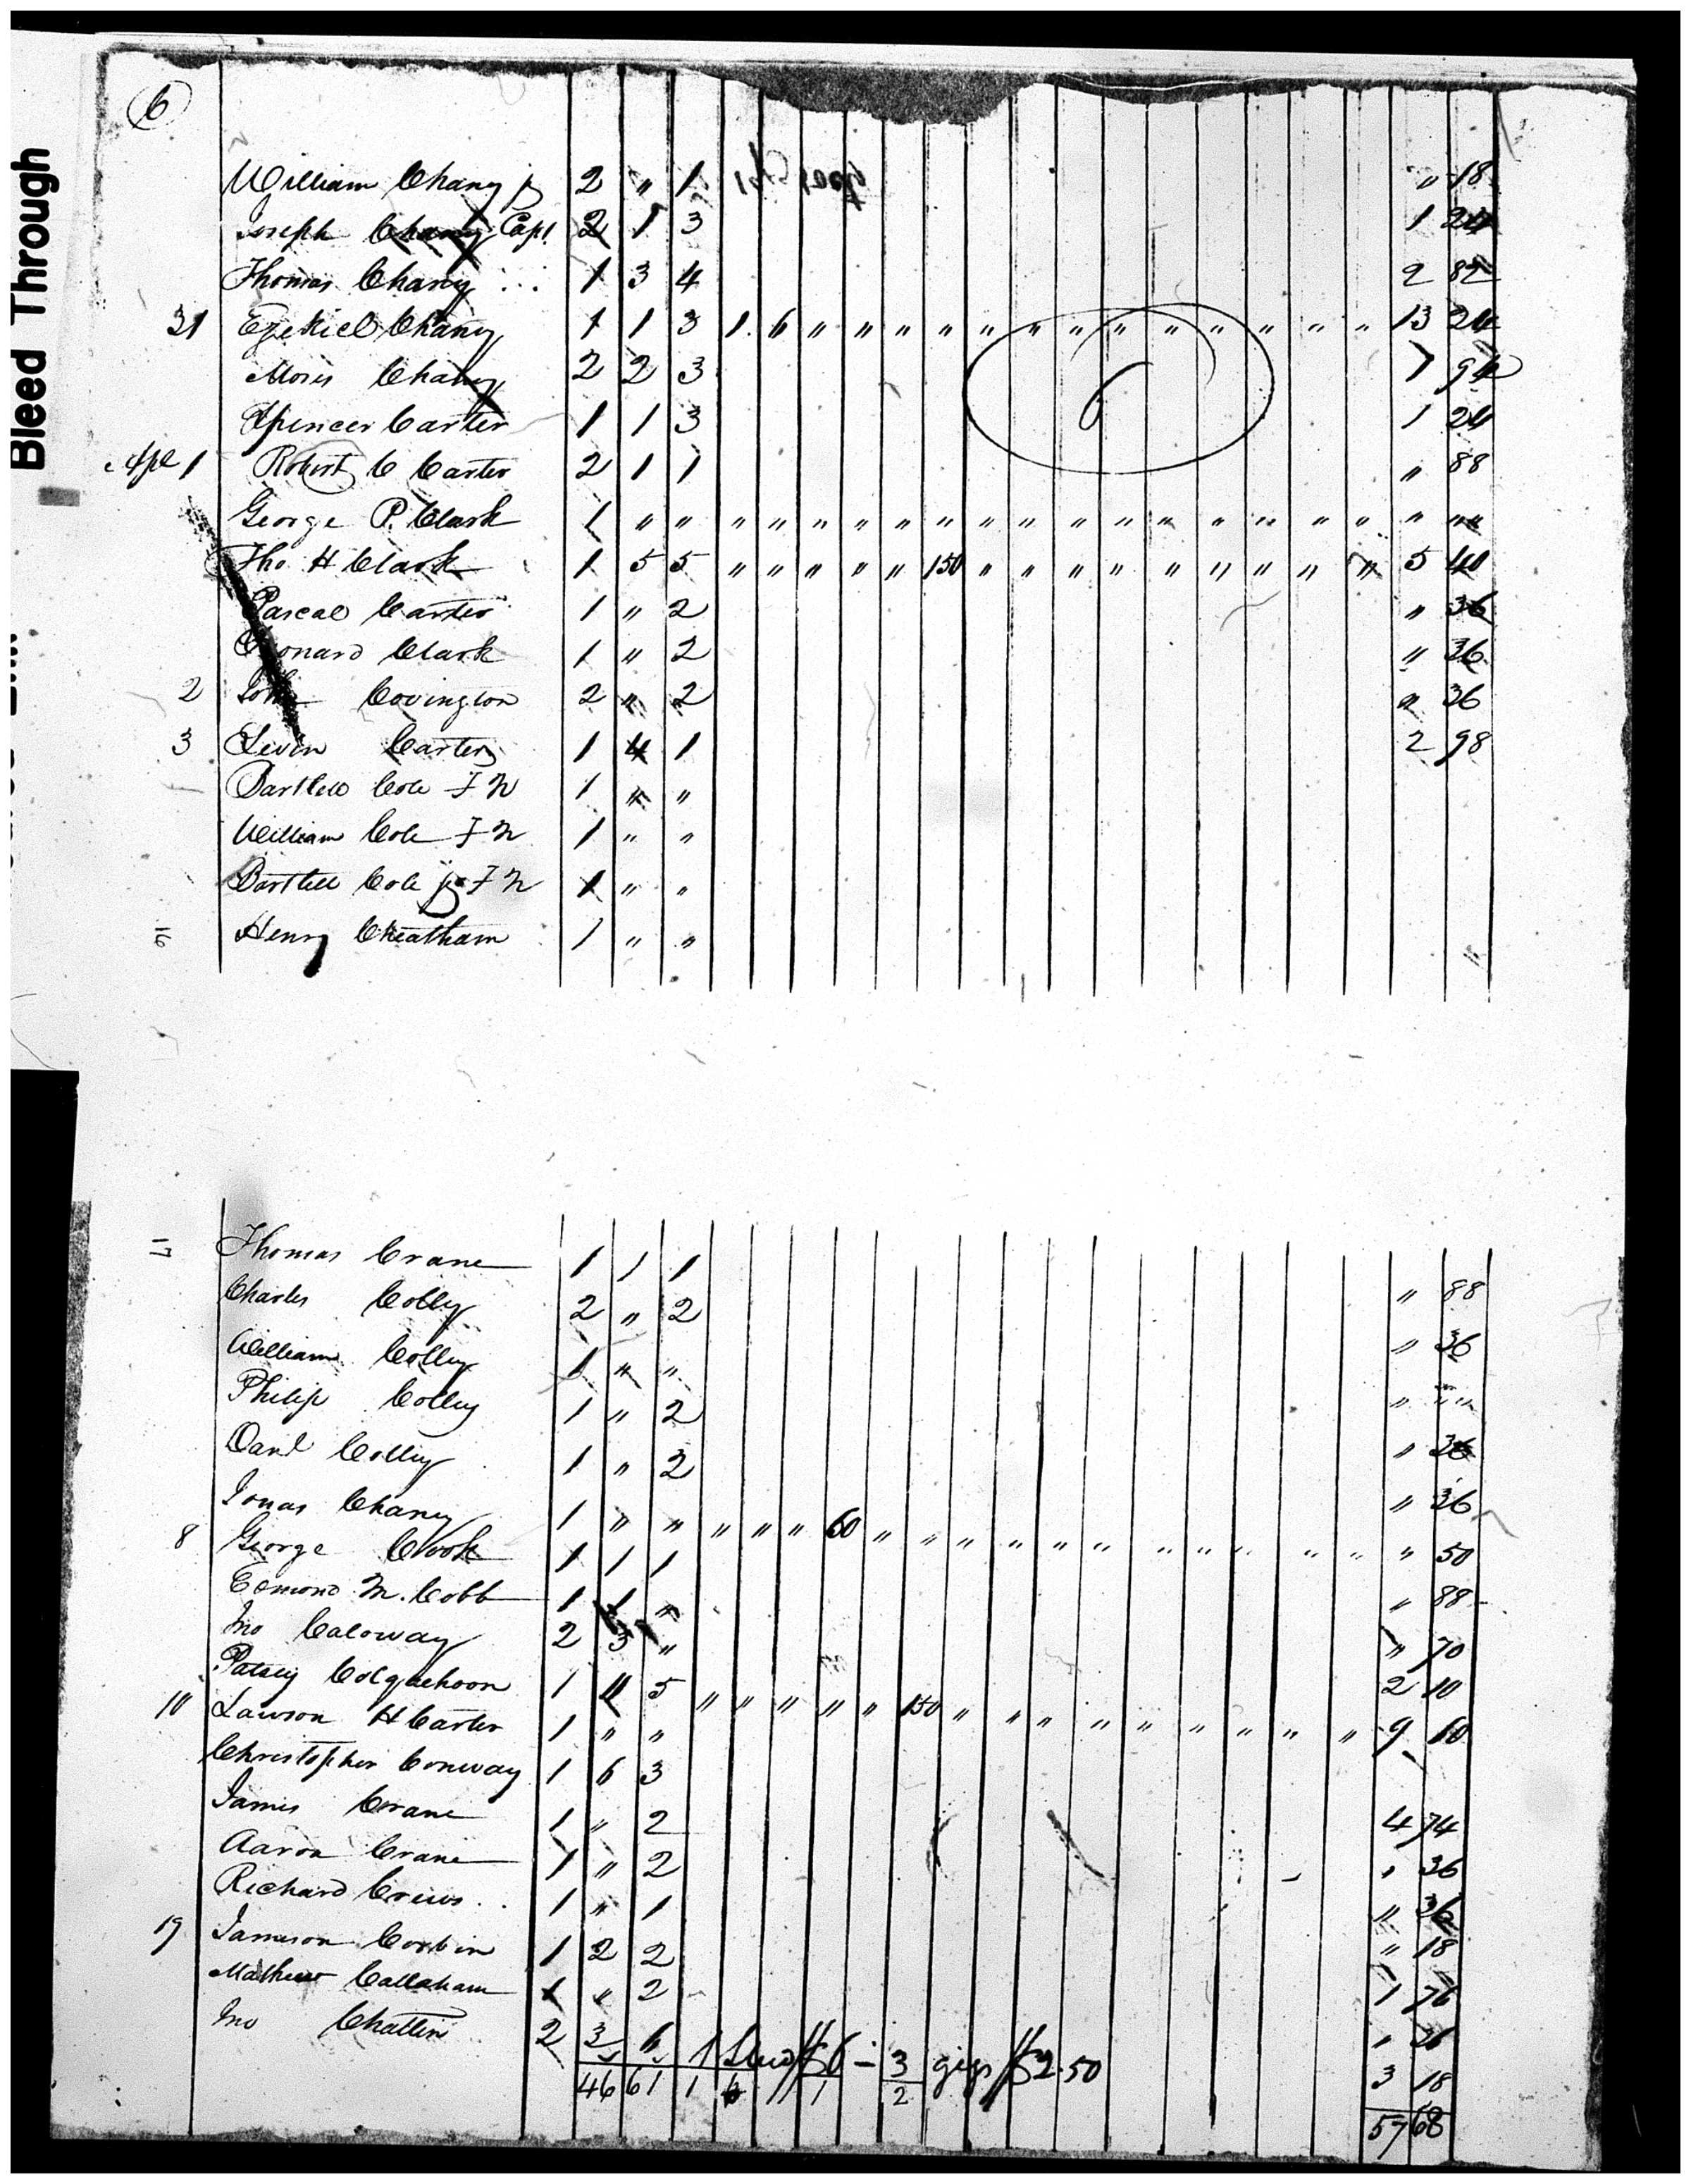 Bleed Through
6
William Chany jr 2 " 1 " 18
Joseph Chany, Capt. 2 1 3 1 24
Thomas Chany 1 3 4 2 82
31 Ezekiel Chany 1 1 3 1 6 " " " " " " " " " " " " " " 13 24
Moses Chany 2 2 3 1 94
Spencer Carter 1 1 3 1 24
6
Apl 1 Robert C Carter 2 1 1 " 88
George P. Clark 1 " " " " " " " " " " " " " " " " " " " "
Tho H Clark 1 5 5 " " " " " 150 " " " " " " " " " 5 40
Pascal Carter 1 " 2 " 36
Leonard Clark 1 " 2 " 36
2 John Covington 2 " 2 " 36
3 Levin Carter 1 4 1 2 98
Bartlett Cole F N 1 " "
William Cole F N 1 " "
Bartlett Cole jr F N 1 " "
Henry Cheatham 1 " "
Thomas Crane 1 1 1 " 88
Charles Colley 2 " 2 " 36
William Colley 1 " " " "
Philip Colley 1 " 2 " 36
Danl Colley 1 " 2 " 36
Jonas Chany 1 " " " " " 60 " " " " " " " " " " " " 50
8 George Cook 1 1 1 " 88
Edmond M. Cobb 1 1 " " 70
Jno Caloway 2 3 " 2 10
Patsey Colquehoon 1 4 5 " " " " " 150 " " " " " " " " " 9 60
10 Lawson H Carter 1 " "
Christopher Conway 1 6 3 4 74
James Crane 1 " 2 " 36
Aaron Crane 1 " 2 " 36
Richard Crews 1 " 1 " 18
19 Jameson Corbin 1 2 2 1 76
Mathew Callaham 1 " 2 " 36
Jno Chattin 2 3 6 3 18
1 Stud $6 - 3 gigs $2.50
46 61 1 6 1 2 57 68